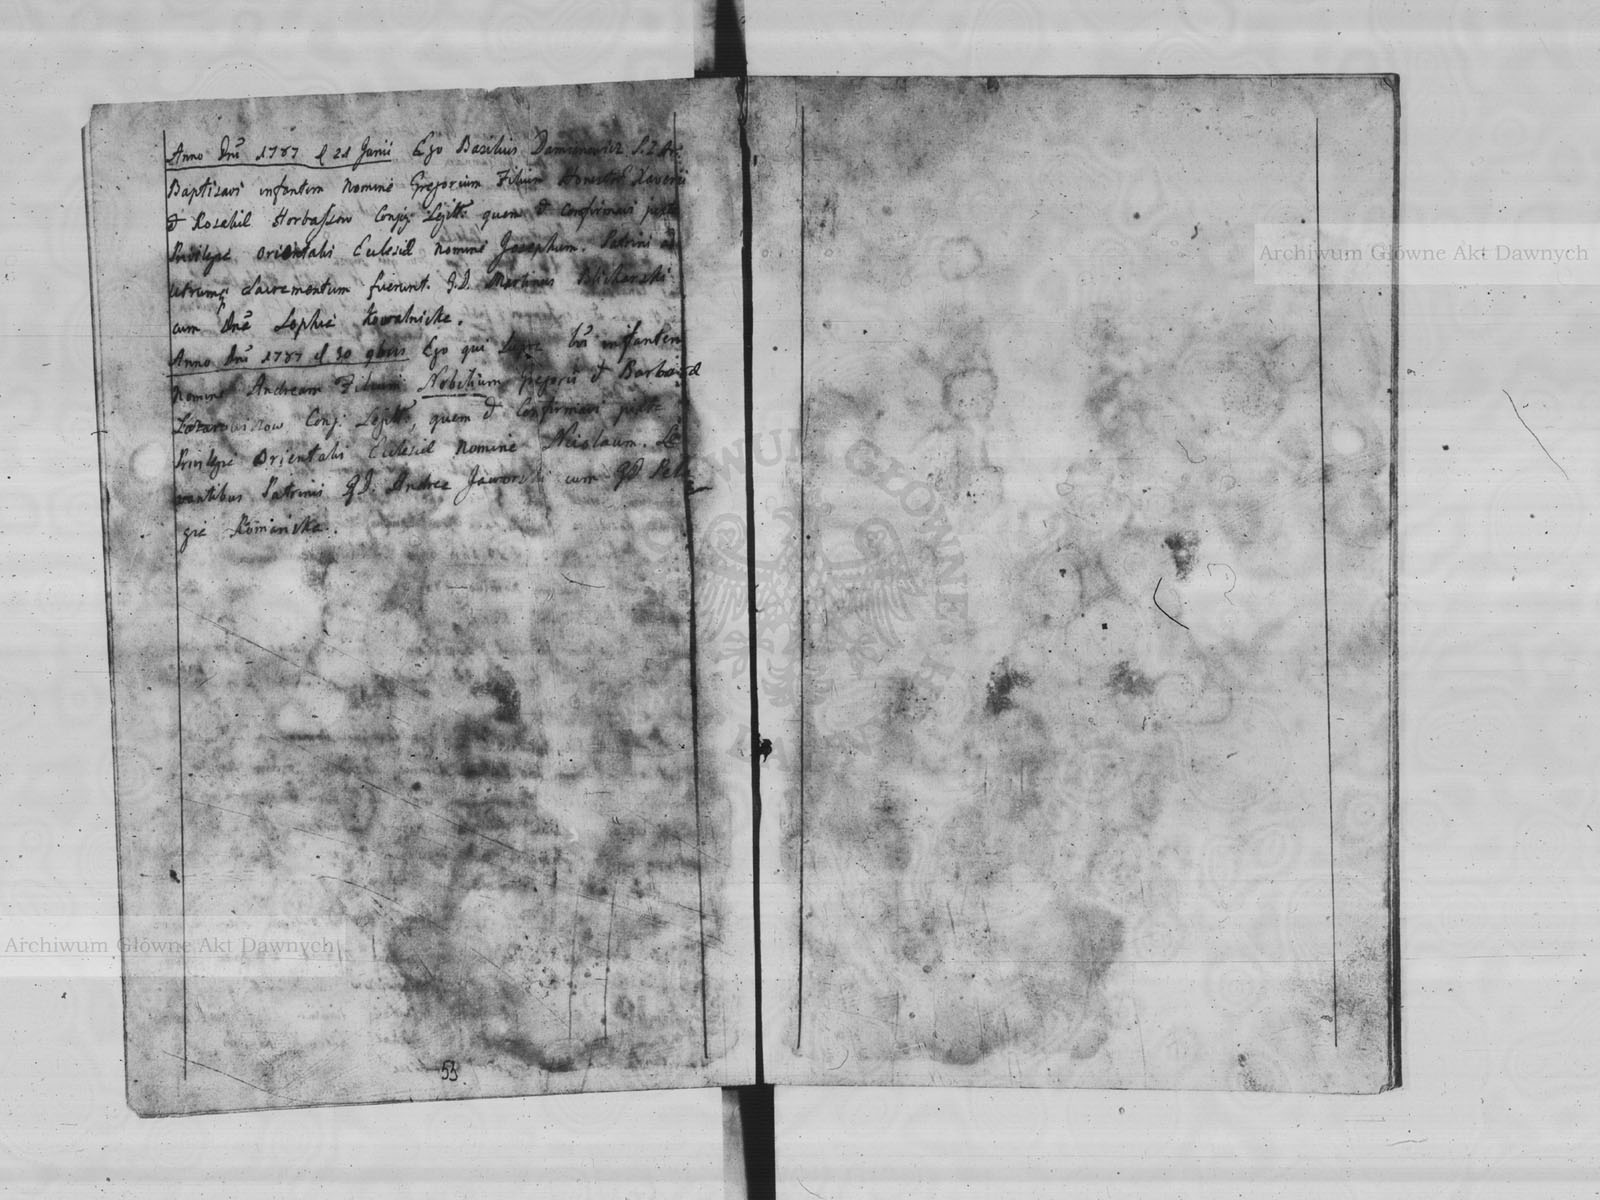 Anno Dni 1787 d 21 Junii Ego Basilius Damianowicz
Baptisavi infantem Nomine Gregorium Filium Xaverii
& Rosaliæ Conjg: Legitt: quem & confirmavi juxta
Privilegia Orientalis Ecclesiæ nomine Josephum. Patrini ad
utrumq Sacramentum fuerunt. G.D. Martinus
cum Dna Sophia Kowalnicka.
Anno Dni 1787 d 30 9bris Ego qui Supra infantem
Nomine Andream Filium Nobilium Gregorii & Barbaræ
Conj: Legitt:, quem & Confirmavi juxta
Privilegia Orientalis Ecclesiæ Nomine Nicolaum. Le
vantibus Patrinis GD. Andrea Jaworski cum GD Pela
gia Romanicka.
53.
Archiwum Główne Akt Dawnych
Archiwum Główne Akt Dawnych